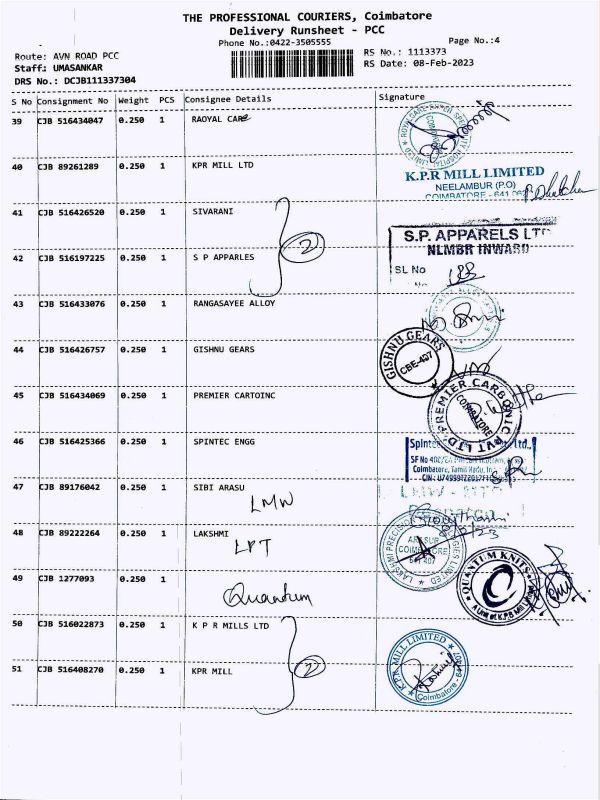 THE PROFESSIONAL COURIERS, Coimbatore
Delivery Runsheet - PCC
Phone No.:0422-3505555 Page No.:4
Route: AVN ROAD PCC RS No.: 1113373
Staff: UMASANKAR RS Date: 08-Feb-2023
DRS No.: DCJB111337304
S No Consignment No Weight PCS Consignee Details Signature
39 CJB 516434047 0.250 1 RAOYAL CARE
COIMBATORE
40 CJB 89261289 0.250 1 KPR MILL LTD
K.P.R MILL LIMITED
NEELAMBUR (P.O)
COIMBATORE - 641 062
41 CJB 516426520 0.250 1 SIVARANI
2
S.P. APPARELS LTD
NLMBR INWARD
42 CJB 516197225 0.250 1 S P APPARLES
SL No 188
43 CJB 516433076 0.250 1 RANGASAYEE ALLOY
44 CJB 516426757 0.250 1 GISHNU GEARS
GISHNU GEARS
CBE-407
45 CJB 516434069 0.250 1 PREMIER CARTOINC
PREMIER CARBONIC PVT LTD
COIMBATORE
46 CJB 516425366 0.250 1 SPINTEC ENGG
Spintec Ltd.,
Coimbatore, Tamil Nadu,
47 CJB 89176042 0.250 1 SIBI ARASU
LMW
LMW
48 CJB 89222264 0.250 1 LAKSHMI
LPT
LAKSHMI PRECISION
ARASUR
COIMBATORE
641 407
49 CJB 1277093 0.250 1
Quantum
QUANTUM KNITS
A Unit of K.P.R Mill
50 CJB 516022873 0.250 1 K P R MILLS LTD
2
51 CJB 516408270 0.250 1 KPR MILL
K.P.R MILL LIMITED
Coimbatore - 641 407